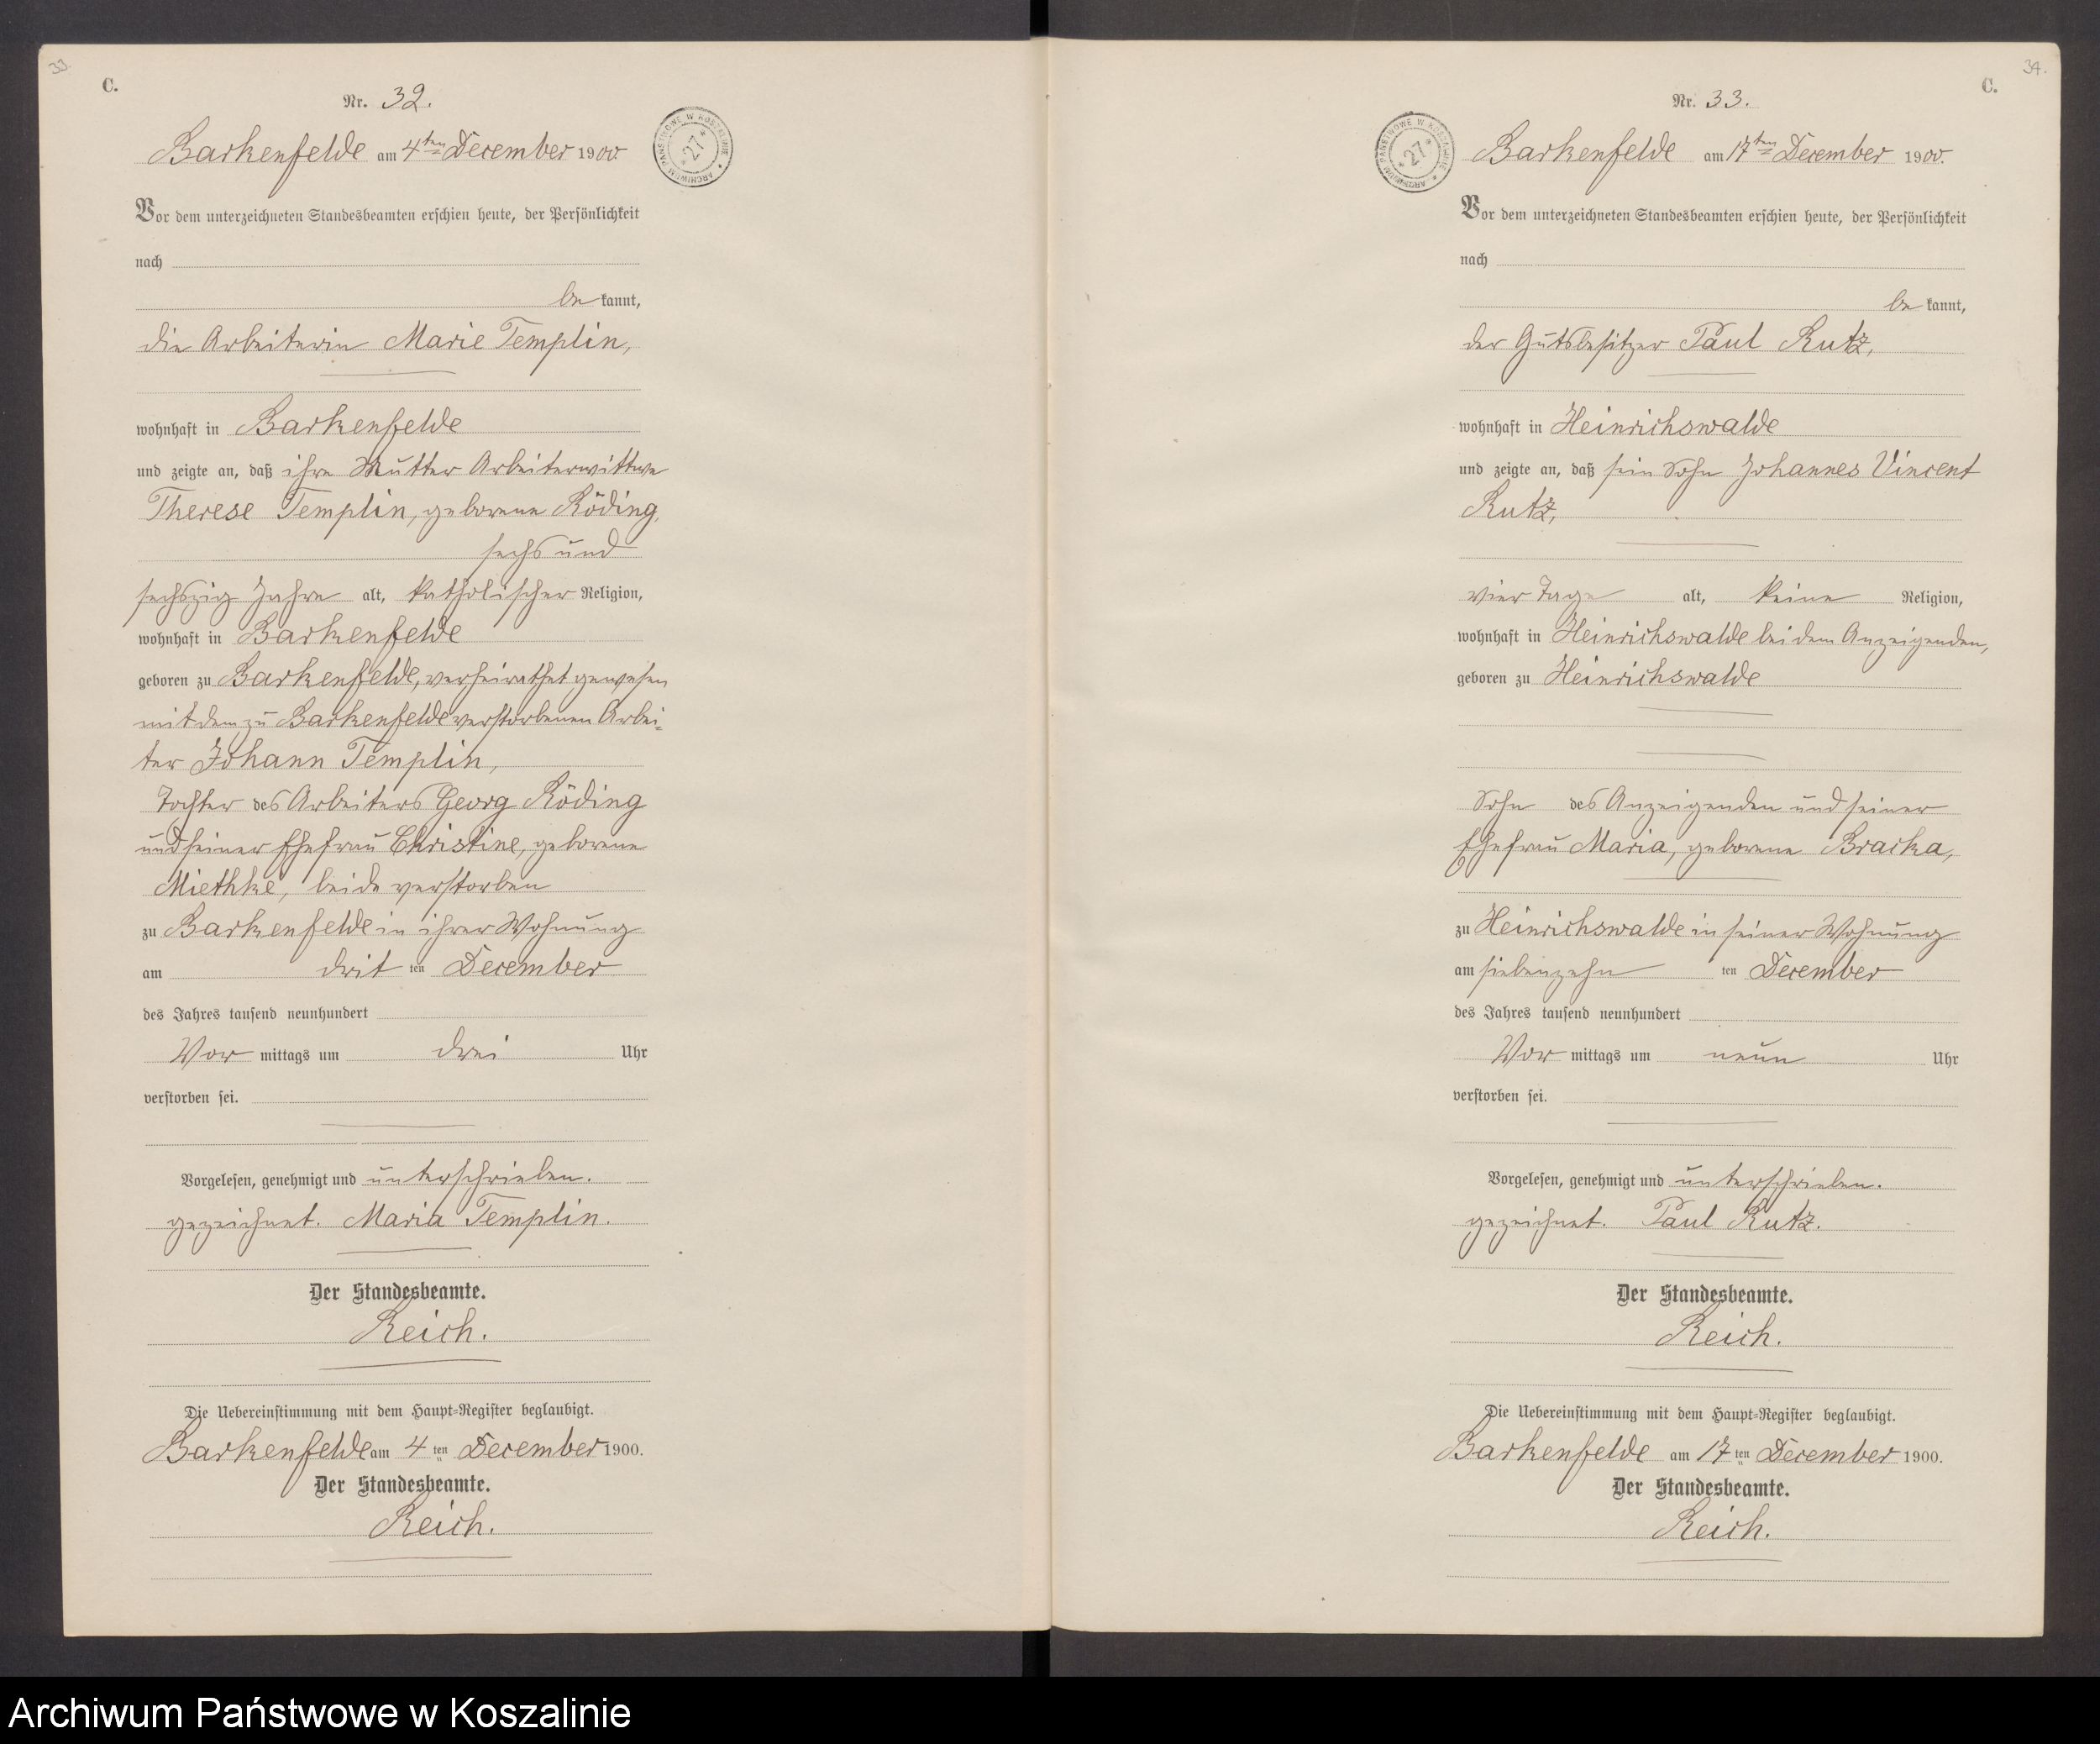 33.
C.
Nr. 32.
Barkenfelde am 4ten December 1900
Vor dem unterzeichneten Standesbeamten erschien heute, der Persönlichkeit
nach
be kannt,
die Arbeiterin Marie Templin,
wohnhaft in Barkenfelde
und zeigte an, daß ihre Mutter Arbeiterwittwe
Therese Templin, geborene Röding,
sechs und
sechszig Jahre alt, katholischer Religion,
wohnhaft in Barkenfelde
geboren zu Barkenfelde, verheirathet gewesen
mit dem zu Barkenfelde verstorbenen Arbei-
ter Johann Templin,
Tochter des Arbeiters Georg Röding
und seiner Ehefrau Christine, geborene
Miethke, beide verstorben
zu Barkenfelde in ihrer Wohnung
am drit ten December
des Jahres tausend neunhundert
Vor mittags um drei Uhr
verstorben sei.
Vorgelesen, genehmigt und unterschrieben.
gezeichnet. Maria Templin.
Der Standesbeamte.
Reich.
Die Uebereinstimmung mit dem Haupt-Register beglaubigt.
Barkenfelde am 4 ten December 1900.
Der Standesbeamte.
Reich.
ARCHIWUM PAŃSTWOWE W KOSZALINIE
*27*
34.
C.
Nr. 33.
ARCHIWUM PAŃSTWOWE W KOSZALINIE
*27*
Barkenfelde am 17ten December 1900.
Vor dem unterzeichneten Standesbeamten erschien heute, der Persönlichkeit
nach
be kannt,
der Gutsbesitzer Paul Rutz,
wohnhaft in Heinrichswalde
und zeigte an, daß sein Sohn Johannes Vincent
Rutz,
vier Tage alt, keine Religion,
wohnhaft in Heinrichswalde bei dem Anzeigenden,
geboren zu Heinrichswalde
Sohn des Anzeigenden und seiner
Ehefrau Maria, geborene Bracka,
zu Heinrichswalde in seiner Wohnung
am siebenzehn ten December
des Jahres tausend neunhundert
Vor mittags um neun Uhr
verstorben sei.
Vorgelesen, genehmigt und unterschrieben.
gezeichnet. Paul Rutz.
Der Standesbeamte.
Reich.
Die Uebereinstimmung mit dem Haupt-Register beglaubigt.
Barkenfelde am 17 ten December 1900.
Der Standesbeamte.
Reich.
Archiwum Państwowe w Koszalinie